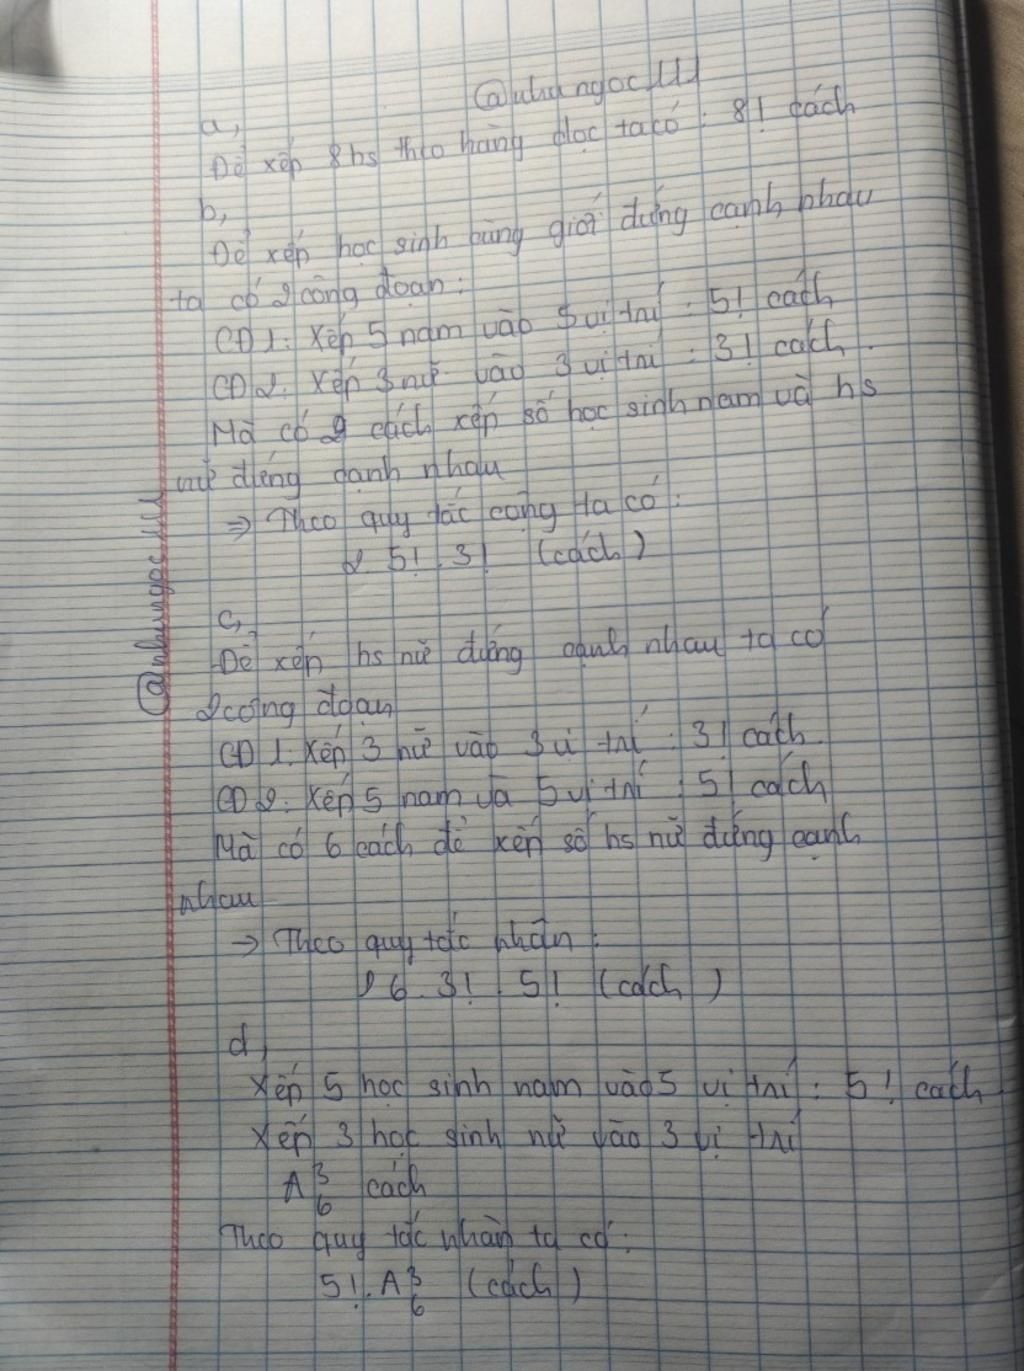 @nhungoc111
a,
Để xếp 8 hs theo hàng dọc ta có : 8! cách
b,
Để xếp học sinh cùng giới đứng cạnh nhau
ta có 2 công đoạn:
CĐ 1: Xếp 5 nam vào 5 vị trí : 5! cách
CĐ 2: Xếp 3 nữ vào 3 vị trí : 3! cách.
Mà có 2 cách xếp số học sinh nam và hs
nữ đứng cạnh nhau
⇒ Theo quy tắc cộng ta có:
2 5! . 3! (cách)
c,
Để xếp hs nữ đứng cạnh nhau ta có
2 công đoạn
CĐ 1: Xếp 3 nữ vào 3 vị trí : 3! cách.
CĐ 2: Xếp 5 nam và 5 vị trí : 5! cách
Mà có 6 cách để xếp số hs nữ đứng cạnh
nhau
→ Theo quy tắc nhân :
6 . 3! . 5! (cách)
d,
Xếp 5 học sinh nam vào 5 vị trí : 5! cách
Xếp 3 học sinh nữ vào 3 vị trí
A³₆ cách
Theo quy tắc nhân ta có:
5!. A³₆ (cách)
@nhungoc111